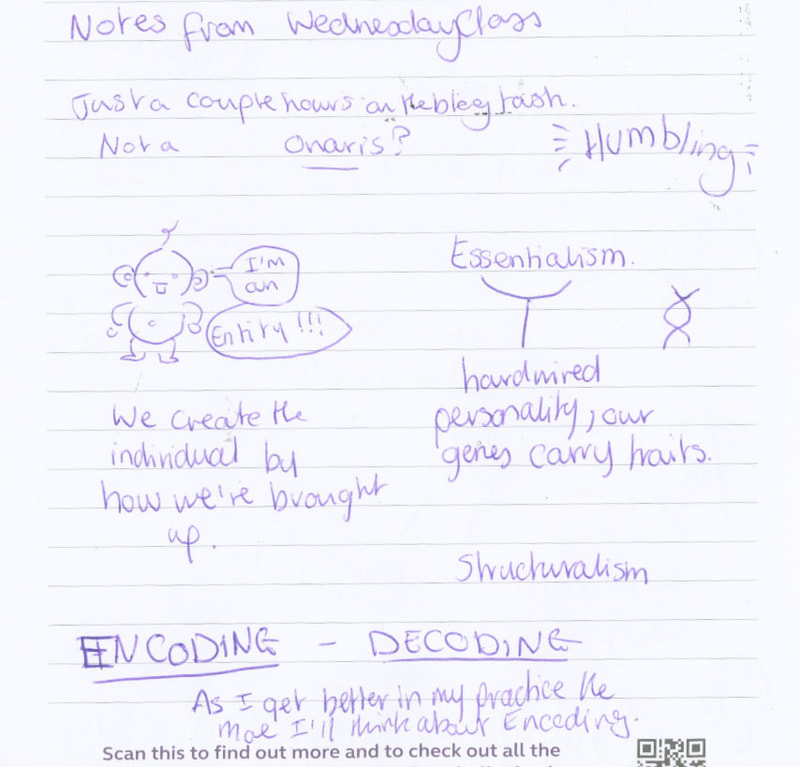 Notes from Wednesday Class
Just a couple hours on the bleeg tash.
Not a onaris?
Humbling
I'm
an
Entity!!!
Essentialism.
hardwired
personality, our
genes carry traits.
We create the
individual by
how we're brought
up.
Structuralism
ENCODING - DECODING
As I get better in my practice the
moe I'll think about Encoding.
Scan this to find out more and to check out all the